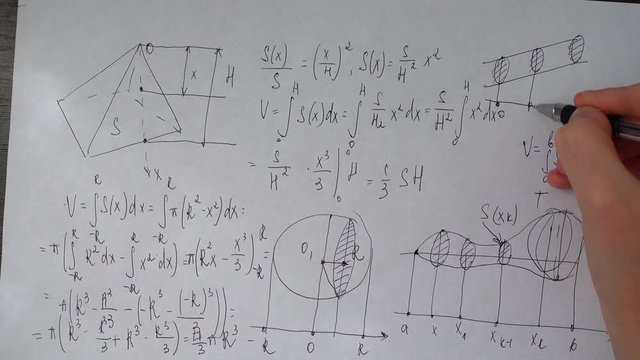 O
x
H
S
x
S(x)/S = (x/H)², S(x) = S/H² x²
V = ∫₀ᴴ S(x)dx = ∫₀ᴴ S/H² x²dx = S/H² ∫₀ᴴ x²dx
= S/H² · x³/3 |₀ᴴ = 1/3 SH
O
V =
V = ∫₋ᴿᴿ S(x)dx = ∫₋ᴿᴿ π(R²-x²)dx =
= π(∫₋ᴿᴿ R²dx - ∫₋ᴿᴿ x²dx) = π(R²x - x³/3)₋ᴿᴿ =
= π(R³ - R³/3 - (-R³ - (-R)³/3)) =
= π(R³ - R³/3 + R³ - R³/3) = 4/3 πR³
O₁ R
-R O R
T
S(xk)
a x x₁ xk-1 xk b